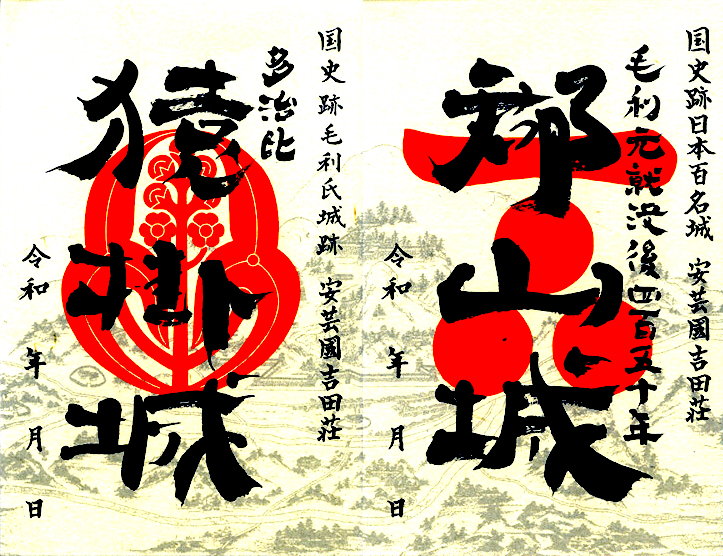 国史跡日本百名城 安芸國吉田荘
毛利元就没後四百五十年
郡山城
令和 年 月 日
国史跡毛利氏城跡 安芸國吉田荘
多治比
猿掛城
令和 年 月 日